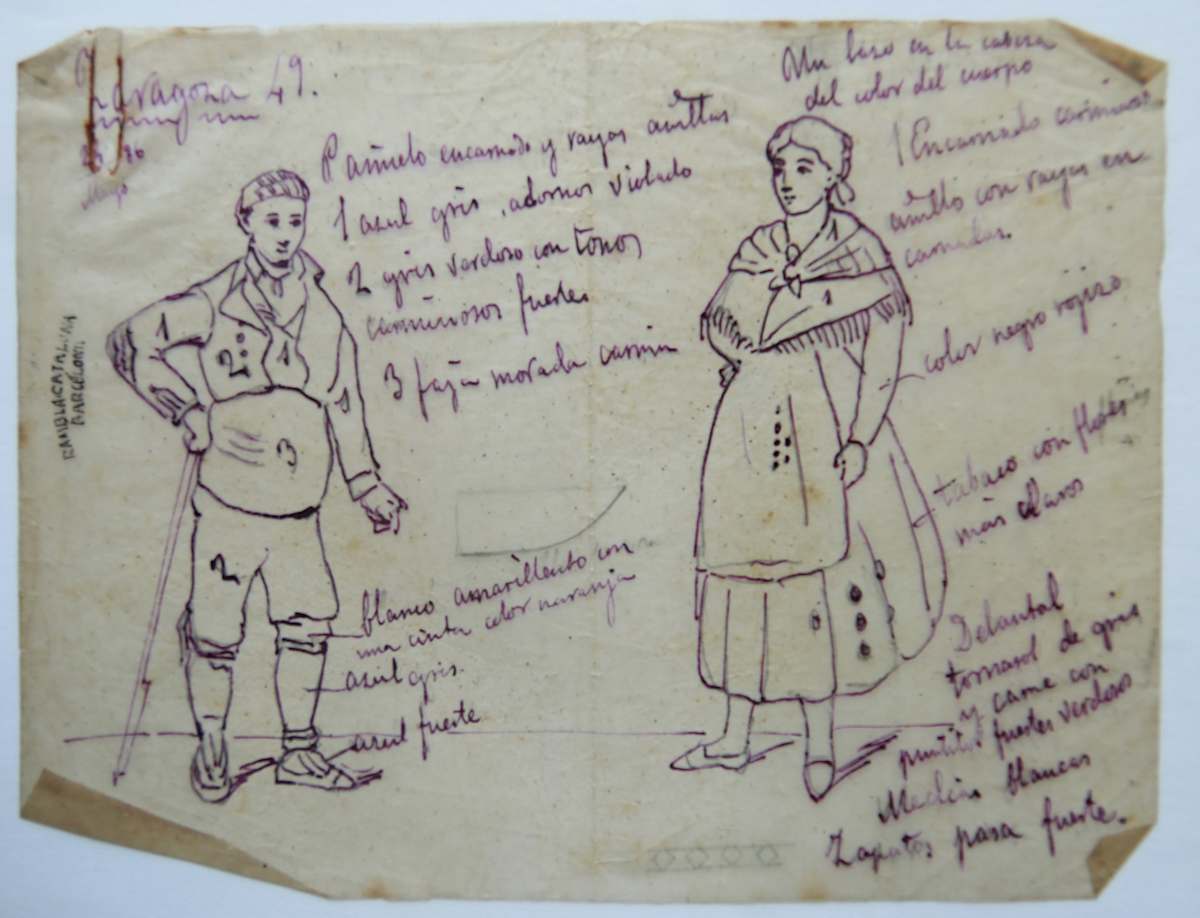 Zaragoza 49.
Mayo
Pañuelo encarnado y rayas amllas
1 azul gris, adornos violado
2 gris verdoso con tonos
carminosos fuertes
3 faja morada carmin
1
2
1
1
3
2
RAMBLA CATALUÑA
BARCELONA
blanco amarillento con
una cinta color naranja
azul gris.
azul fuerte
Un lazo en la cabeza
del color del cuerpo
1 Encarnado carminoso
amllo con rayas en
carnadas.
1
1
color negro rojizo
tabaco con floreс
más claros
Delantal
tornasol de gris
y carne con
puntitos fuertes verdosos
Medias blancas
Zapatos pasa fuerte.